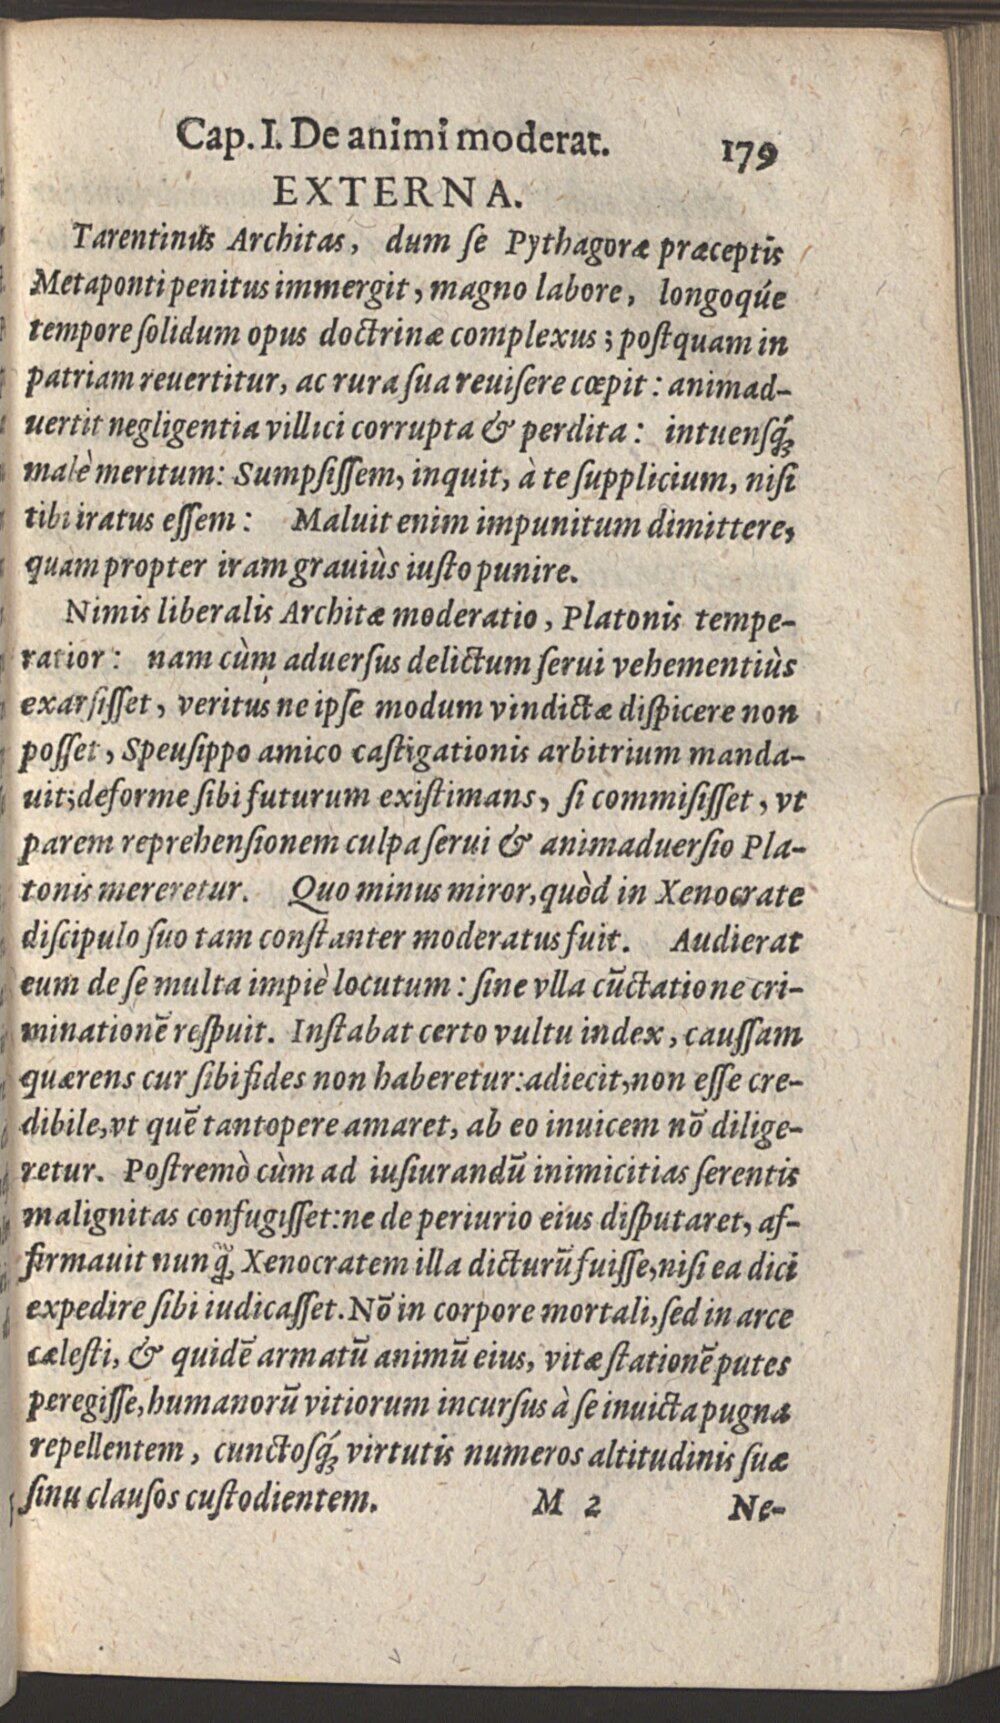 Cap. I. De animi moderat. 179
EXTERNA.
Tarentinus Architas, dum ſe Pythagoræ præceptis
Metaponti penitus immergit, magno labore, longoq́ue
tempore ſolidum opus doctrinæ complexus; poſtquam in
patriam reuertitur, ac rura ſua reuiſere cœpit: animad-
uertit negligentia villici corrupta & perdita: intuenſq́;
malè meritum: Sumpſiſſem, inquit, à te ſupplicium, niſi
tibi iratus eſſem: Maluit enim impunitum dimittere,
quam propter iram grauiùs iuſto punire.
Nimis liberalis Architæ moderatio, Platonis tempe-
ratior: nam cùm aduerſus delictum ſerui vehementiùs
exarſiſſet, veritus ne ipſe modum vindictæ diſpicere non
poſſet, Speuſippo amico caſtigationis arbitrium manda-
uit; deforme ſibi futurum exiſtimans, ſi commiſiſſet, vt
parem reprehenſionem culpa ſerui & animaduerſio Pla-
tonis mereretur. Quo minus miror, quòd in Xenocrate
diſcipulo ſuo tam conſtanter moderatus fuit. Audierat
eum de ſe multa impiè locutum: ſine vlla cūctatione cri-
minationē reſpuit. Inſtabat certo vultu index, cauſſam
quærens cur ſibi fides non haberetur: adiecit, non eſſe cre-
dibile, vt quē tantopere amaret, ab eo inuicem nō dilige-
retur. Poſtremò cùm ad iuſiurandū inimicitias ſerentis
malignitas confugiſſet: ne de periurio eius diſputaret, af-
firmauit nunq̃; Xenocratem illa dicturū fuiſſe, niſi ea dici
expedire ſibi iudicaſſet. Nō in corpore mortali, ſed in arce
cæleſti, & quidē armatū animū eius, vitæ ſtationē putes
peregiſſe, humanorū vitiorum incurſus à ſe inuicta pugna
repellentem, cunctoſq́; virtutis numeros altitudinis ſuæ
ſinu clauſos cuſtodientem. M 2 Ne-